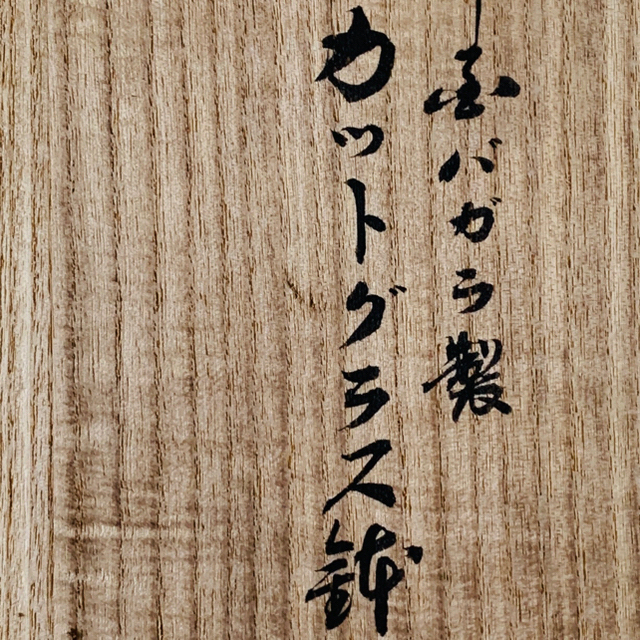 バガラ製
カットグラス鉢